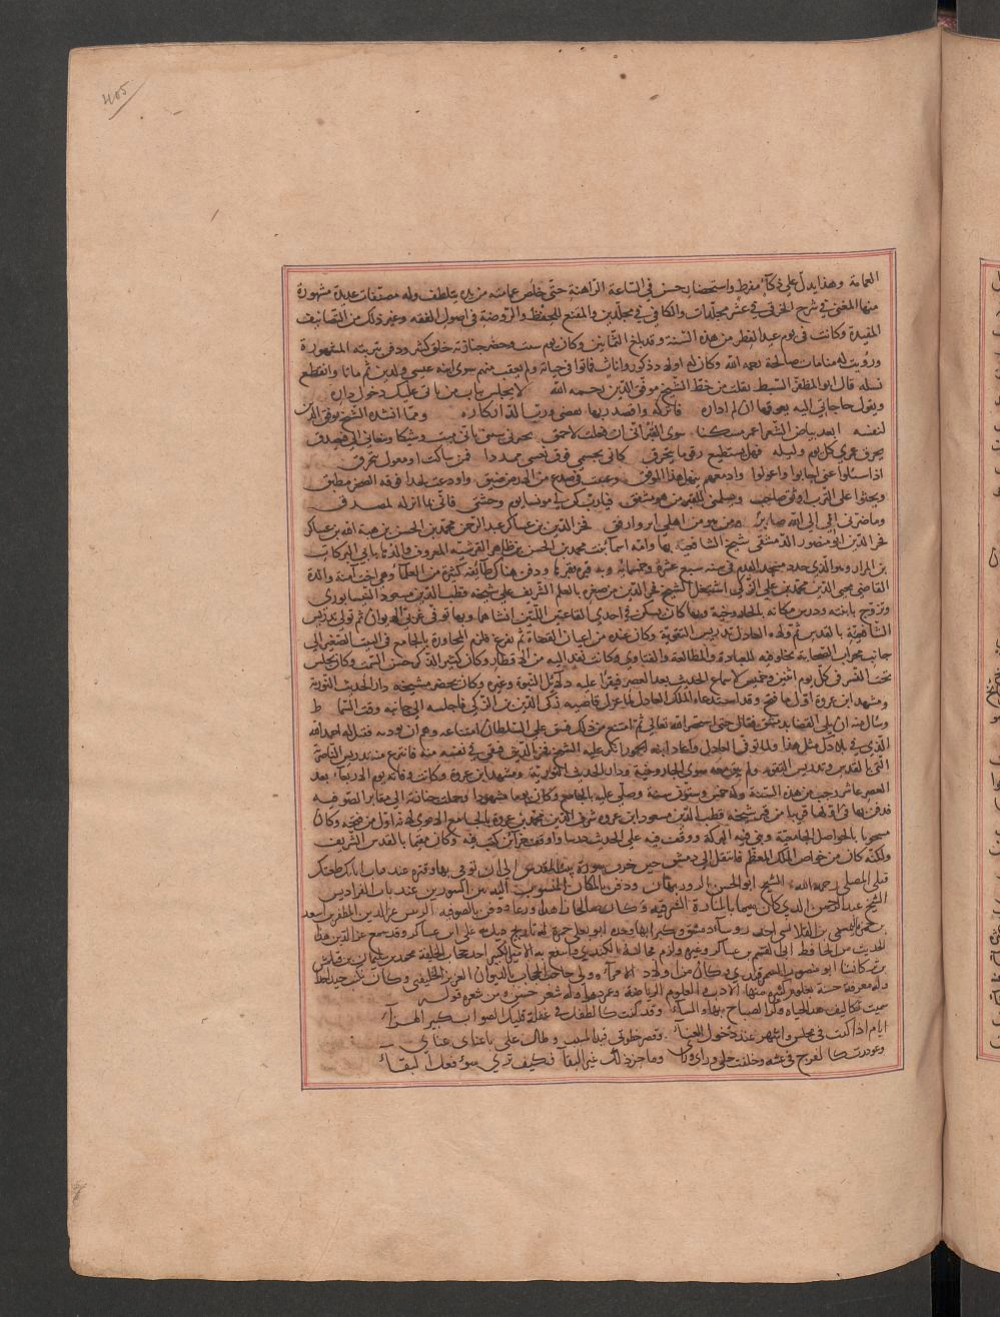 العمامة وهذا يدل على ذكآء مفرط واستحضار حسن في الساعة الراهنة حتى خلص عمامته من يده بتلطف وله مصنفات عديدة مشهورة
منها المغني في شرح الخرقي في عشر مجلدات والكافي في مجلدين والمقنع للحفظ والروضة في اصول الفقه وغير ذلك من التصانيف
المفيدة وكانت في يوم عيد الفطر من هذه السنة وقد بلغ الثمانين وكان يوم سبت وحضر جنازته خلق كثير ودفن بتربته المشهورة
ورؤيت له منامات صالحة رحمه الله وكان له اولاد ذكور واناث فماتوا في حياته ولم يعقب منهم سوى ابنه عيسى ولدين ثم ماتا وانقطع
نسله قال ابو المظفر السبط نقلت من خط الشيخ موفق الدين رحمه الله لا تجلس بباب من يابى عليك دخول داره
ويقول حاجاتي اليه يعوقها ان لم اداره فاتركه واقصد ربها تقضى ورب الدار كاره ومما انشده الشيخ موفق الدين
لنفسه ابعد بياض الشعر اعمر مسكنا سوى القبر اني ان فعلت لاحمق يخبرني شيبي باني ميت وشيكا وينعاني الي فيصدق
يخرق عمري كل يوم وليلة فهل يستطيع رقع ما يتخرق كاني بجسمي فوق نعشي ممددا فمن ساكت او معول يتحرق
اذا سئلوا عني اجابوا واعولوا وادمعهم تنهل هذا الموفق وغيبت في صدع من الارض ضيق واودعت لحدا فوقه الصخر مطبق
ويحثوا على الترب اوثق صاحب ويسلمني للقبر من هو مشفق فيا رب كن لي مونسا يوم وحشتي فاني بما انزلته لمصدق
وما ضرني اني الى الله صاير ومن هو من اهلي ابر وارفق فخر الدين بن عساكر عبد الرحمن بن محمد بن الحسن بن هبة الله بن عساكر
فخر الدين ابو منصور الدمشقي شيخ الشافعية بها وامه اسما بنت محمد بن الحسن بن طاهر القرشية المعروف والدها بابي البركات
بن المراد وهو الذي جدد مسجد القدم في سنة سبع عشرة وخمسمائة وبه قبره وقبرها ودفن هناك طائفة كثيرة من العلمآ وهي اخت آمنة والدة
القاضي محيي الدين محمد بن علي الزكي اشتغل الشيخ فخر الدين من صغره بالعلم الشريف على شيخه قطب الدين مسعود النيسابوري
وتزوج بابنته ودرس مكانه بالجاروخية وبها كان يسكن في احدى القاعتين اللتين انشاهما وبها توفي غربي الايوان ثم تولى تدريس
الشافعية بالقدس ثم ولاه العادل تدريس التقوية وكان عنده من اعيان الفضلاء ثم تفرغ فلزم المجاورة بالجامع في البيت الصغير الى
جانب محراب الصحابة يخلو فيه للعبادة والمطالعة والفتاوي وكانت تفد اليه من الاقطار وكان كثير الذكر حسن السمت وكان يجلس
تحت النسر في كل يوم اثنين وخميس لاسماع الحديث بعد العصر فيقرا عليه دلائل النبوة وغيره وكان يحضر مشيخة دار الحديث النورية
ومشهد ابن عروة اول ما فتح وقد استدعاه الملك العادل لما عزل قاضيه زكي الدين بن الزكي فاجلسه الى جانبه وقت السماط
وسال منه ان يلي القضا بدمشق فقال حتى استخير الله تعالى ثم امتنع من ذلك فشق على السلطان امتناعه وهم ان يوذيه فقيل له احمد الله
الذي في بلادك مثل هذا ولما توفي العادل واعاد ابنه الخمور انكر عليه الشيخ فخر الدين فبقي في نفسه منه فانتزع منه تدريس الناصرية
التي بالقدس وتدريس التقوية ولم يبق معه سوى الجاروخية ودار الحديث النورية ومشهد ابن عروة وكانت وفاته يوم الاربعاء بعد
العصر عاشر رجب من هذه السنة وله خمس وستون سنة وصلي عليه بالجامع وكان يوما مشهودا وحملت جنازته الى مقابر الصوفية
فدفن بها في اولها قريبا من قبر شيخه قطب الدين مسعود ابن عروة شرف الدين محمد بن عروة بالجامع الاموي لانه اول من فتحه وكان
مشحونا بالحواصل الجامعية وبنى فيه البركة ووقف فيه على الحديث درسا واوقف خزائن كتب فيه وكان مقيما بالقدس الشريف
ولكنه كان من خواص الملك المعظم فانتقل الى دمشق حين خرب سور بيت المقدس الى ان توفي بها وقبره عند قباب اتابك طغتكين
قبلي المصلى رحمه الله الشيخ ابو الحسن الروزبهاري ودفن بالمكان المنسوب اليه بين السورين عند باب الفراديس
الشيخ عبد الرحمن الذي كان مقيما بالمنارة الشرقية وكان صالحا زاهدا ورعا ودفن بالصوفية الرئيس عز الدين المظفر بن اسعد
بن حمزة التميمي بن القلانسي احد روسآء دمشق وكبرائها وجده ابو يعلى حمزة له تاريخ ذيل به على ابن عساكر وقد سمع عز الدين هذا
الحديث من الحافظ ابي القسم بن عساكر وغيره ولزم مجالسة الكندي وانتفع به الامير الكبير احد حجاب الخليفة محمد بن سليمان بن قتلمش
بن تركانشا ابو منصور السمرقندي وكان من اولاد الامرآء وولي حاجب الحجاب بالديوان العزيز الخليفي وكان يكتب جيدا
وله معرفة حسنة بعلوم كثيرة منها الادب والعلوم الرياضية وعمر دهرا وله شعر حسن ومن شعره قوله
سئمت تكاليف هذا الحياة وكر الصباح بها والمسآء وقد كنت كالطفل في عقله قليل الصواب كثير الهرآء
انام اذا كنت في مجلس واسهر عند دخول الغنآء وقصر خطوي قيد المشيب وطال على ما عناني عنائي
وغودرت كالفرخ في عشه وخلفت حلمي ورائي وما جر ذلك غير البقآ فكيف ترى سوء فعل البقاء